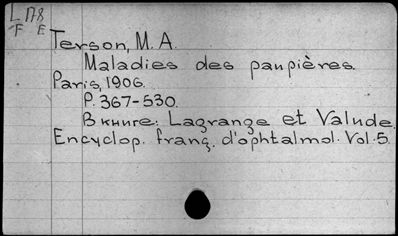 L 178
F E
Terson, M. A.
Maladies des paupières.
Paris, 1906.
P. 367-530.
В книге: Lagrange et Valude.
Encyclop. franç. d'ophtalmol. Vol. 5.